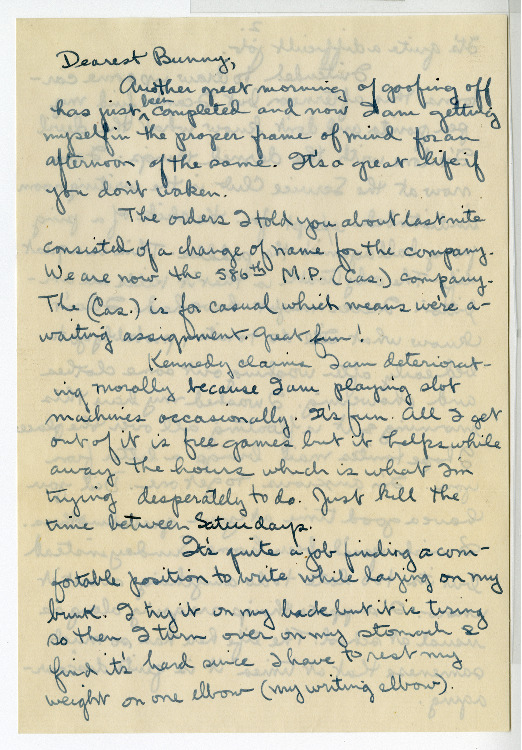 Dearest Bunny,
Another great morning of goofing off
has just been completed and now I am getting
myself in the proper frame of mind for an
afternoon of the same. It's a great life if
you don't waken.
The orders I told you about last nite
consisted of a change of name for the company.
We are now the 586th M.P. (Cas.) company.
The (Cas.) is for casual which means we're a-
waiting assignment. Great fun!
Kennedy claims I am deteriorat-
ing morally because I am playing slot
machines occasionally. It's fun. All I get
out of it is free games but it helps while
away the hours which is what I'm
trying desperately to do. Just kill the
time between Saturdays.
It's quite a job finding a com-
fortable position to write while laying on my
bunk. I try it on my back but it is tiring
so then I turn over on my stomach &
find it's hard since I have to rest my
weight on one elbow (my writing elbow).